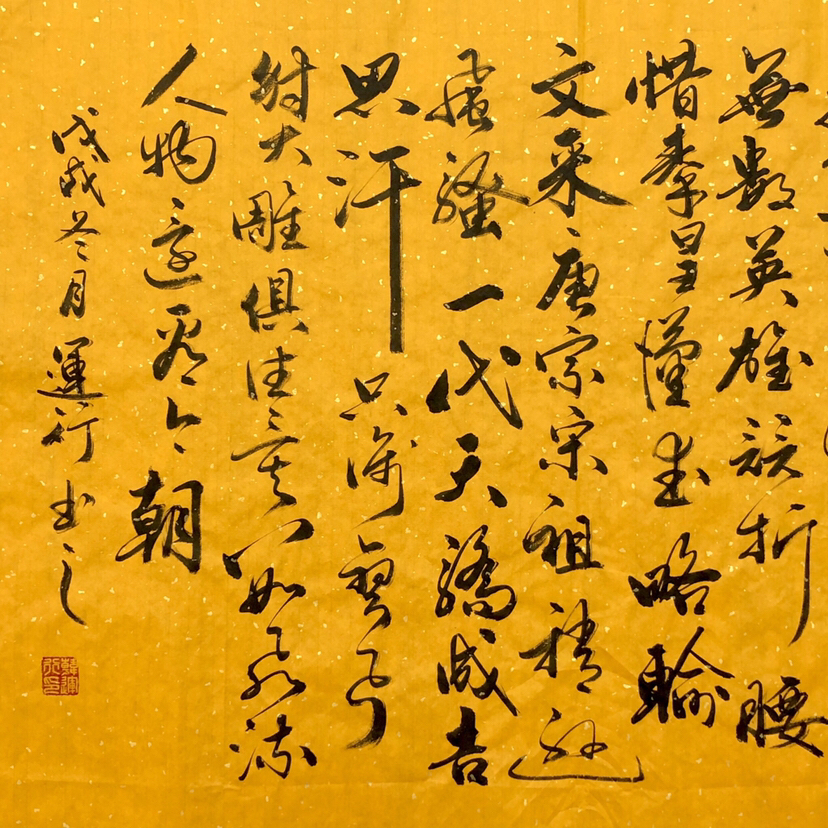 無數英雄競折腰
惜秦皇漢武略輸
文采唐宗宋祖稍遜
風騷一代天驕成吉
思汗只識彎弓
射大雕俱往矣數風流
人物還看今朝
戊戌冬月運行書之